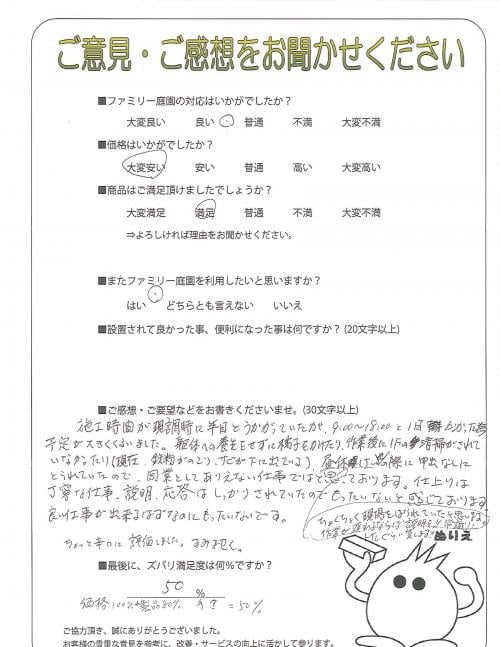 ご意見・ご感想をお聞かせください
■ファミリー庭園の対応はいかがでしたか？
大変良い 良い 普通 不満 大変不満
■価格はいかがでしたか？
大変安い 安い 普通 高い 大変高い
■商品はご満足頂けましたでしょうか？
大変満足 満足 普通 不満 大変不満
⇒よろしければ理由をお聞かせください。
■またファミリー庭園を利用したいと思いますか？
はい どちらとも言えない いいえ
■設置されて良かった事、便利になった事は何ですか？(20文字以上)
■ご感想・ご要望などをお書きくださいませ。(30文字以上)
施工時間が現調時に半日とうかがっていたが、9:00～18:00と1日かかった為
予定が大きくくるいました。躯体への養生をせずに梯子をかけたり、作業後に1Fの清掃がされて
いなかったり(現在、鉄粉がのこり、サビが下に出ている)、昼休けいの際に申出なしに
とられていたので、同業としてありえない仕事ではと思っております。仕上りは
丁寧な仕事、説明、応答はしっかりされていたのでもったいないと感じております。
良い仕事が出来るはずなのにもったいないです。
ちょくちょく現場もはなれていたと思いますが
作業が遅れるならば説明を!!
ちょっと辛口に評価しました。すみません。
ぬりえ
■最後に、ズバリ満足度は何%ですか？
50 %
価格100%+製品80% = 50%
ご協力頂き、誠にありがとうございました。
お客様の貴重な意見を参考に、改善・サービスの向上に活かして参ります。